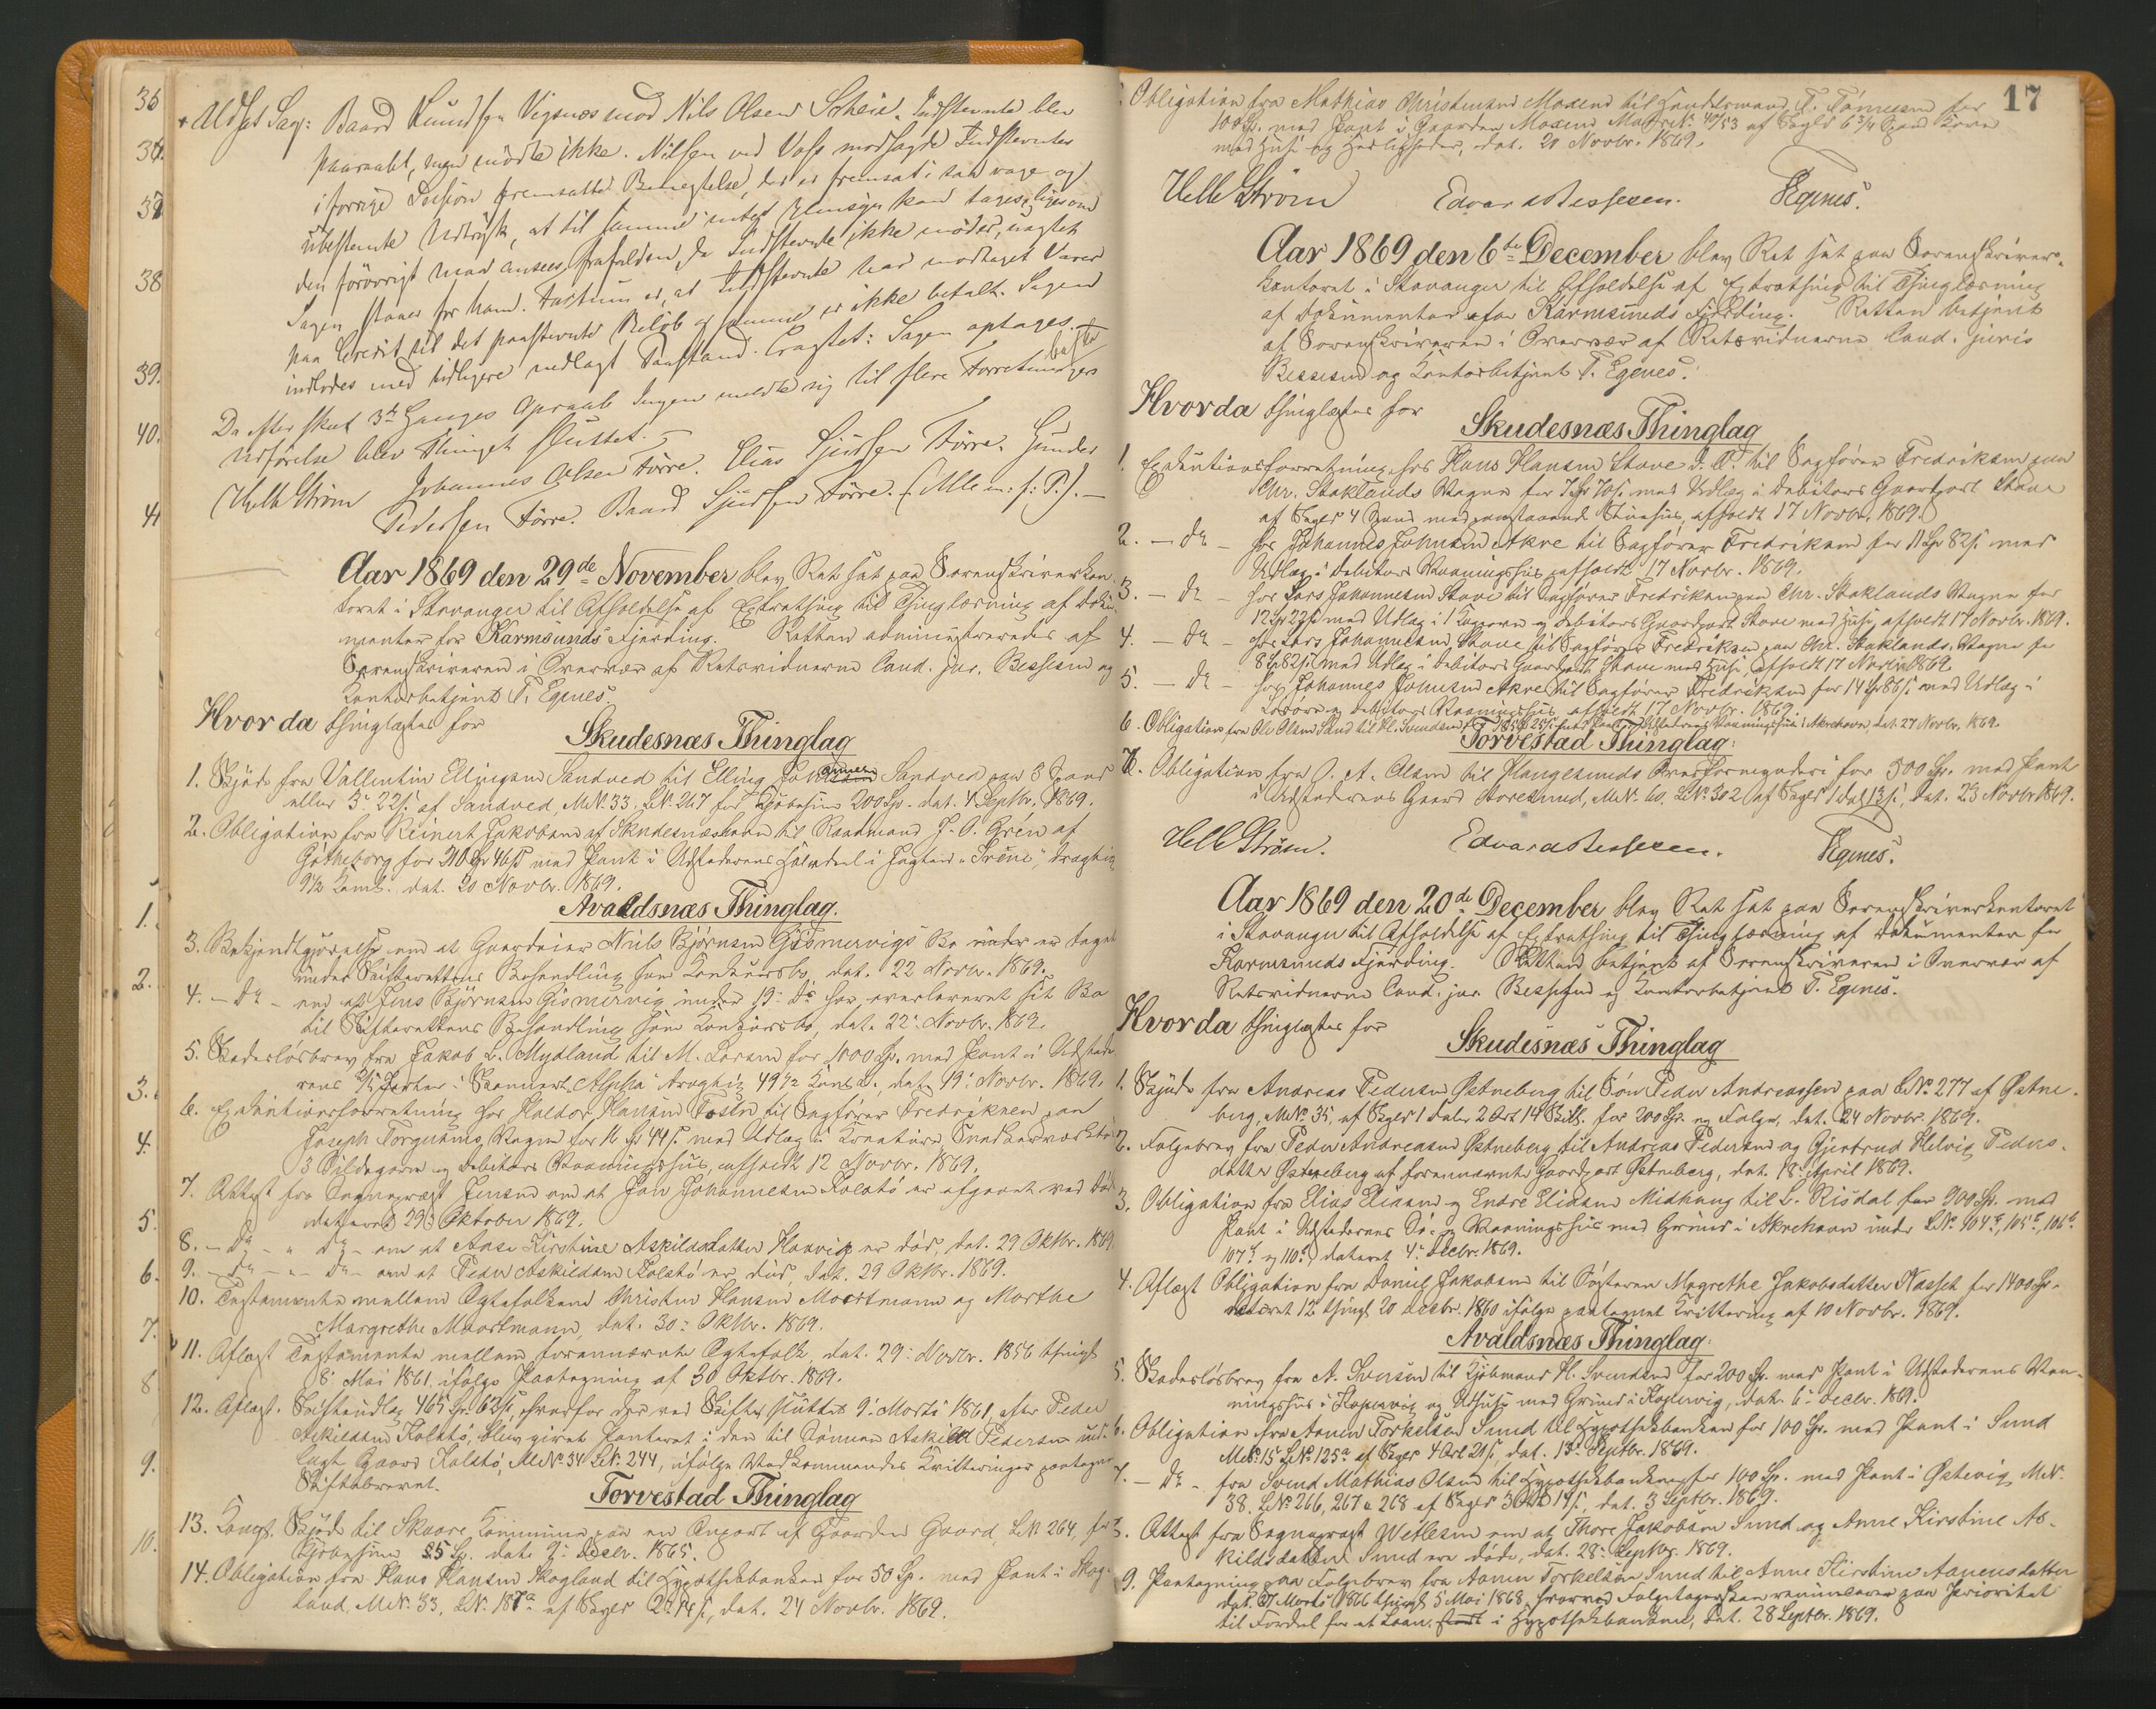 Udsat Sag: Baard Knudsen Vigsnæs mod Nils Olsen Scheie. Indstevnte blev
paaraabt, men mödte ikke. Nilsen ved Vass modsagde Indstevntes
i forrige Session fremsatte Benegtelse, der er fremsat i saa vage og
ubestemte Udtryk, at til samme intet Hensyn kan tages, ligesom
den förövrigt maa ansees frafalden, da Indstevnte ikke möder, uagtet
Sagen staaer for ham. Factum er, at Indstevnte har modtaget Varer
paa Credit til det paastevnte Belöb og samme er ikke betalt. Sagen
indlodes med tidligere nedlagt Paastand. Eragtet: Sagen optages.
Da efter skeet 3de Ganges Opraab Ingen meldte sig til flere Forretningers
Udförelse blev Thinget sluttet.
Helle Ström Johannes Olsen Förre. Elias Sjursen Förre. Gunder
Pedersen Förre. Baard Sjursen Förre. (Alle m: f: P.).
Aar 1869 den 29de November blev Ret sat paa Sorenskriverkon-
toret i Stavanger til Afholdelse af Extrathing til Thinglæsning af Doku-
menter for Karmsunds Fjerding. Retten administreredes af
Sorenskriveren i Overvær af Retsvidnerne Cand. jur. Bessesen og
Kontorbetjent T. Egenes
Hvorda thinglæstes for
Skudesnæs Thinglag
1. Skjøde fra Vallentin Ellingsen Sandved til Elling Sandved paa 3 Spand
eller 3 22/ß af Sandved, M.N. 33. L.N. 267 for Kjøbesum 200 Sp. dat. 4 Septbr. 1869.
2. Obligation fra Reinert Jakobsen af Skudesnæshavn til Raadmand J. O. Grén af
Götheborg for 210 Sp 46/ß med Pant i Udstederens Halvdeel i Jagten "Iréne", drægtig
9½ Koms. dat. 20 Novbr. 1869.
Avaldsnæs Thinglag.
3. Bekjendtgjørelse om at Gaardeier Nils Bjørnsen Gismervigs Bo under er taget
under Skifterettens Behandling som Konkursbo, dat. 22 Novbr. 1869.
4. — Do — om at Jens Bjørnsen Gismervig under 19 Ds har overleveret sit Bo
til Skifterettens Behandling som Konkursbo, dat. 22 Novbr. 1869.
5. Skadesløsbrev fra Jakob L. Mydland til M. Larsen for 1000 Sp. med Pant i Udstede-
rens Parter i Skonnert "Alpha" drægtig 49½ Koms., dat. 19 Novbr. 1869.
6. Exekutionsforretning hos Haldor Hansen Fosen til Sagfører Fredriksen paa
Joseph Torgersens Vegne for 16 Sp 44 ß med Udlæg i Kreature,
3 Sildegarn og Debitors Vaaningshus, afholdt 12 Novbr. 1869.
7. Attest fra Sognepræst Jensen om at Jon Johannesen Kolstö er afgaaet ved Döden
dateret 29 Oktober 1869.
8. — Do — " Do — om at Ane Kirstine Askildsdatter Haavig er död, dat. 29 Oktbr. 1869.
9. — Do — " — Do — om at Peder Askildsen Kolstö er död, dat. 29 Oktbr. 1869.
10. Testamente mellem Ægtefolkene Christen Hansen Moortmann og Marthe
Margrethe Moortmann, dat. 30 Oktbr. 1869.
11. Aflæst Testamente mellem forannævnte Ægtefolk, dat. 29 Novbr. 1856 thingl.
8 Mai 1861, ifølge Paategning af 30 Oktbr. 1869.
12. Aflæst. Skifteudlæg 465 Sp. 63/ß, hvorfor der ved Skiftet sluttet 9 Marts 1861, efter Peder
Askildsen Kolstö, blev givet Panteret i den til Sönnen Askild Pedersen ud-
lagt Gaard Kolstö, M.N. 34 L.N. 244, ifølge Vedkommendes Kvitteringer paategnet
Skiftebrevet.
Torvestad Thinglag
13. Kongl. Skjøde til Skaare Kommune paa en Anpart af Gaarden Gaard, L.N. 264, for
Kjøbesum 85 Sp. dat. 9 Decbr. 1865.
14. Obligation fra Hans Hansen Skogland til Hypothekbanken for 50 Sp. med Pant i Skog-
land, M.N. 33, L.N. 187a af Skyld 2 14 ß, dat. 24 Novbr. 1869.
17
Obligation fra Mathias Christensen Moxenes til Handelsmand T. Tönnesen for
100 Sp. med Pant i Gaarden Moxenes Matr. N. 40/53 af Skyld 6 3/4 Spand Korn
med Huse og Herligheder, dat. 20 Novbr. 1869.
Helle Ström Edvard Bessesen. TEgenes.
Aar 1869 den 6te December blev Ret sat paa Sorenskriver-
kontoret i Stavanger til Afholdelse af Extrathing til Thinglæsning
af Dokumenter for Karmsunds Fjerding. Retten betjent
af Sorenskriveren i Overvær af Retsvidnerne Cand. juris
Bessesen og Kontorbetjent T. Egenes.
Hvorda thinglæstes for
Skudesnæs Thinglag
1. Exekutionsforretning hos Hans Hansen Stave til Sagfører Fredriksen paa
Chr. Staklands Vegne for 7 Sp 70 ß med Udlæg i Debitors Gaardpart Stave
af Skyld 4 Spand med paastaaende Stuehus, afholdt 17 Novbr. 1869.
2. — Do — hos Johannes Johnsen Akre til Sagfører Fredriksen for 11 Sp 82 ß med
Udlæg i Debitors Vaaningshus, afholdt 17 Novbr. 1869.
3. — Do — hos Lars Johannesen Stave til Sagfører Fredriksen paa Chr. Staklands Vegne for
12 Sp 22 ß med Udlæg i 1 og Debitors Gaardpart Stave med Huse, afholdt 17 Novbr. 1869.
4. — Do — hos Lars Johannesen Stave til Sagfører Fredriksen paa Chr. Staklands Vegne for
8 Sp 82 ß med Udlæg i Debitors Gaardpart Stave med Huse, afholdt 17 Novbr. 1869.
5. — Do — hos Johannes Johnsen Akre til Sagfører Fredriksen for 14 Sp 86 ß med Udlæg i
og Debitors Vaaningshus, afholdt 17 Novbr. 1869.
6. Obligation fra Ole Olsen Sund til H. Svendsen med Pant i Udstederens Vaaningshus i Akrehavn, dat. 27 Novbr. 1869.
Torvestad Thinglag:
7. Obligation fra O. A. Olsen til Haugesunds Overformynderi for 500 Sp. med Pant
i Udstederens Gaard Storesund, M.N. 60. L.N. 302 af Skyld 1 Dal 13 ß, dat. 23 Novbr. 1869.
Helle Ström. Edvard Bessesen. TEgenes.
Aar 1869 den 20de December blev Ret sat paa Sorenskriverkontoret
i Stavanger til Afholdelse af Extrathing til Thinglæsning af Dokumenter for
Karmsunds Fjerding. Retten betjent af Sorenskriveren i Overvær af
Retsvidnerne Cand. jur. Bessesen og Kontorbetjent T. Egenes.
Hvorda thinglæstes for
Skudesnæs Thinglag
1. Skjøde fra Andreas Pedersen Østneberg til Søn Peder Andreassen paa L.N. 277 af Østne-
berg, M.N. 35, af Skyld 1 Daler 2 Ort 14 Skill. for 200 Sp. og Folge, dat. 24 Novbr. 1869.
2. Folgebrev fra Peder Andreasen Østneberg til Andreas Pedersen og Gjertrud Helvig Peders-
datter Østneberg af forannævnte Gaardpart Østneberg, dat. 18 April 1869.
3. Obligation fra Elias Eliasen og Endre Eliasen Midhaug til L. Risdal for 900 Sp. med
Pant i Udstedernes Sø- og Vaaningshus med Grund i Akrehavn under L.N. 104, 105, 106,
107 og 110, dateret 4 Decbr. 1869.
4. Aflæst Obligation fra Daniel Jakobsen til Søsteren Magrethe Jakobsdatter Nasset for 1400 Sp.
dateret 12 thingl. 20 Decbr. 1860 ifølge paategnet Kvittering af 10 Novbr. 1869.
Avaldsnæs Thinglag:
5. Skadesløsbrev fra A. Iversen til Kjøbmand H. Svendsen for 200 Sp. med Pant i Udstederens Vaa-
ningshus i Kopervig og Udhus med Grund i Kopervig, dat. 6 Decbr. 1869.
6. Obligation fra Aanen Torkelsen Sund til Hypothekbanken for 100 Sp. med Pant i Sund
M.N. 15 L.N. 125a af Skyld 4 Ort 21 ß, dat. 13 Septbr. 1869.
7. — Do — fra Svend Mathias Olsen til Hypothekbanken for 100 Sp. med Pant i Østevig M.N.
38. L.N. 266, 267 & 268 af Skyld 3 Ort 19 ß, dat. 3 Septbr. 1869.
8. Attest fra Sognepræst Wetlesen om at Thore Jakobsen Sund og Anne Kirstine As-
kildsdatter Sund ere døde, dat. 28 Septbr. 1869.
9. Paategning paa Folgebrev fra Aanen Torkelsen Sund til Anne Kirstine Aanensdatter
dat. 27 Marts 1866 thingl. 5 Mai 1868, hvorved Folgetagersken renuncerer paa Prioritet
til Fordel for et Laan i Hypothekbanken, dat. 28 Septbr. 1869.